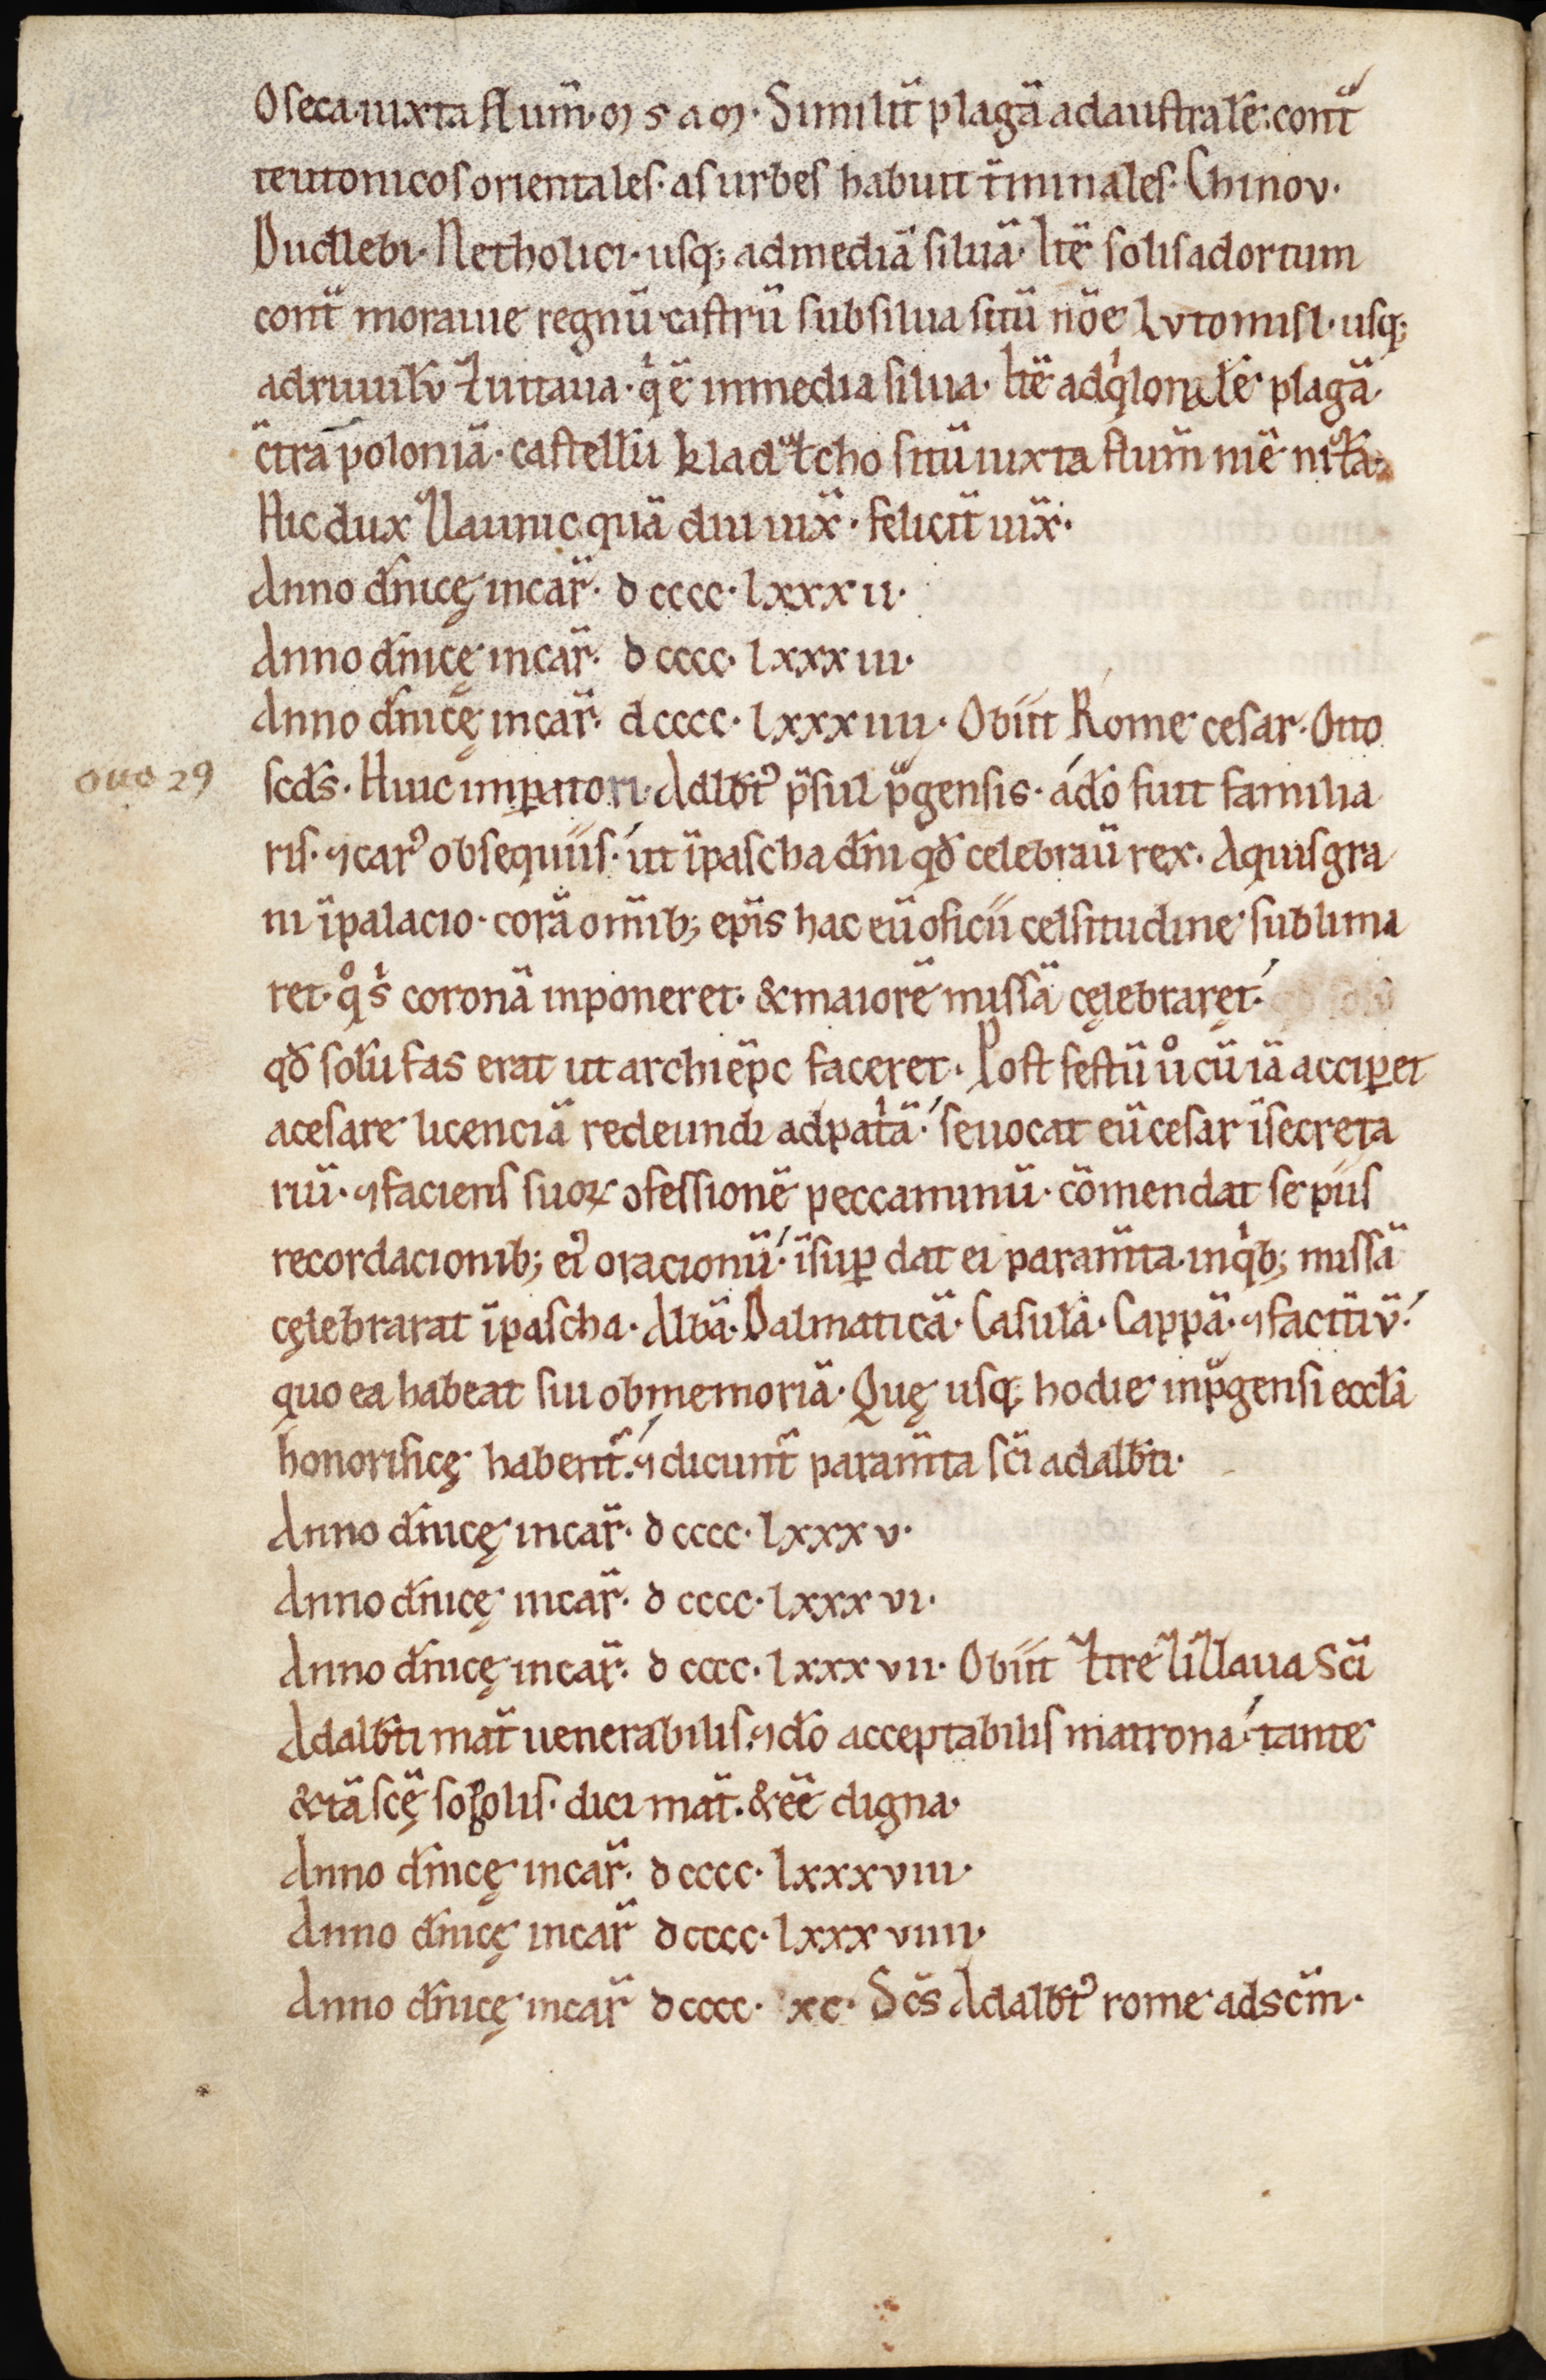 Oseca·iuxta flum̄·M S A M· Similit̄ plagā ad australē·cont̄
teutonicos orientales· as urbes habuit t̄minales· Chinov·
Dudlebi· Netholici· usq; ad mediā siluā· Itē solis ad ortum
cont̄ morauie regnū castrū sub silua sitū nōe Lvtomisl· usq;
ad riuulū Zuitaua· qͥ ē in media silua· Itē ad aqͥlonalē plagā
c̄tra poloniā· castellū kladzcho sitū iuxta flum̄ niē nizā·
Hic dux zlaunic quā diu uix̄· felicit̄ uix̄·
Anno dn̄icę incar̄· d cccc· lxxx ii·
Anno dn̄icę incar̄· d cccc· lxxx iii·
Anno dn̄icę incar̄· d cccc· lxxx iiii· Obiit Rome cesar· Otto
otto 29
scd̄s· Huic imꝑatori· Adalbt̄ꝰ p̄sul p̄gensis· ado̅ fuit familia
ris· ⁊ carꝰ obsequiis· ut ī pascha dn̄i qd̄ celebrau̅ rex· Aquisgra
ni ī palacio· corā om̄ib; epīs hac eū oficii celsitudine sublima
ret· qͦ sͥ coronā inponeret· & maiorē missā cęlebraręt·
qd̄ solū fas erat ut archiep̄c faceret· Post festū uͦ cū iā acciꝑet
a cesare licenciā redeundi ad pat̄ā· seuocat eū cesar ī secreta
riū· ⁊ faciens suoꝝ ꝯfessionē peccaminū· cōmendat se piis
recordacionib; eiꝰ oracionū· īsuꝑ dat ei param̄ta· in qͥb; missā
cęlebrarat ī pascha· Albā· Dalmaticā· Casulā· Cappā· ⁊ factitiū·
quo ea habeat sui ob memoriā· Quę usq; hodie in p̄gensi eccl̄a
honorificę habent̄· ⁊ dicunt̄ param̄ta sc̄i adalbt̄i·
Anno dn̄icę incar̄· d cccc· lxxx v·
Anno dn̄icę incar̄· d cccc· lxxx vi·
Anno dn̄icę incar̄· d cccc· lxxx vii· Obiit Ztrezizlaua Sc̄i
Adalbt̄i mat̄ uenerabilis· ⁊ do̅ acceptabilis matrona· tante
& tā sc̄ę sobolis· dici mat̄· & ēē digna·
Anno dn̄icę incar̄· d cccc· lxxxviii·
Anno dn̄icę incar̄ d cccc· lxxx viiii·
Anno dn̄icę incar̄ d cccc· xc· Sc̄s Adalbt̄ꝰ rome ad sc̄m·